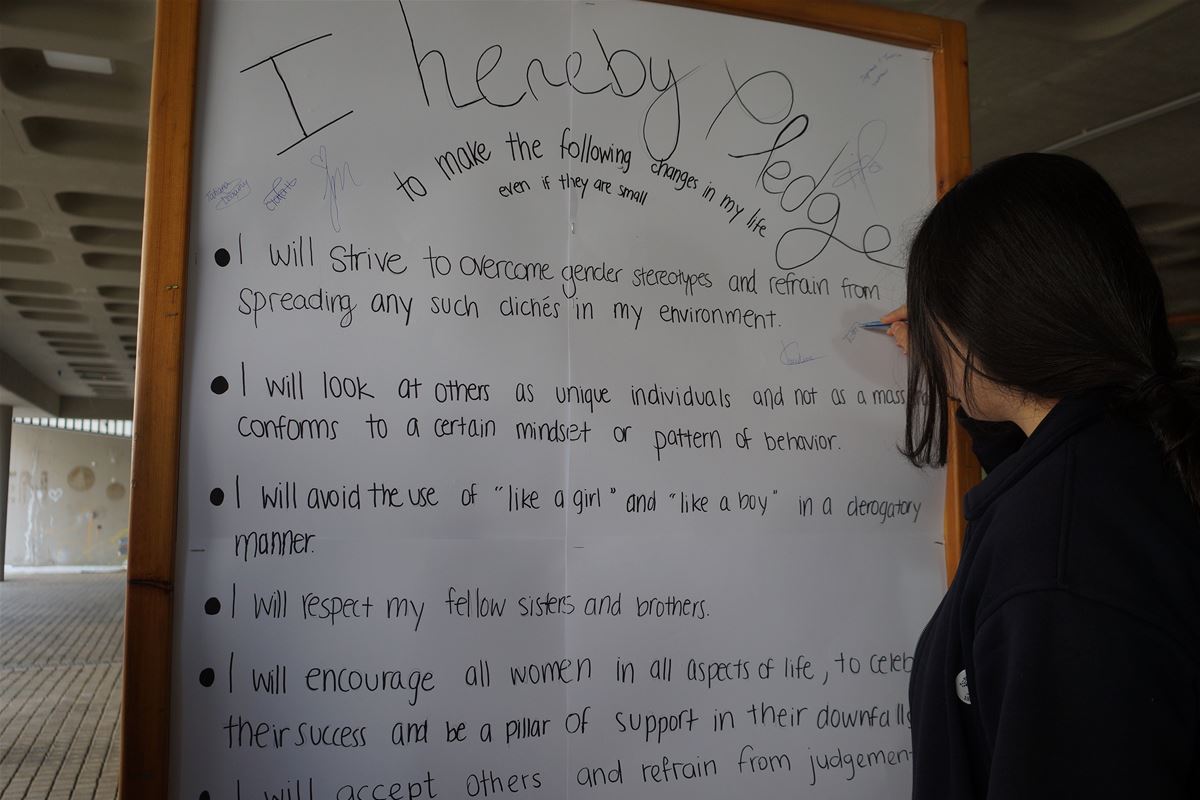 I hereby Pledge
to make the following changes in my life
even if they are small
● I will strive to overcome gender stereotypes and refrain from
spreading any such clichés in my environment.
● I will look at others as unique individuals and not as a mass
conforms to a certain mindset or pattern of behavior.
● I will avoid the use of "like a girl" and "like a boy" in a derogatory
manner.
● I will respect my fellow sisters and brothers.
● I will encourage all women in all aspects of life, to celeb
their success and be a pillar of support in their downfalls
● I will accept others and refrain from judgement